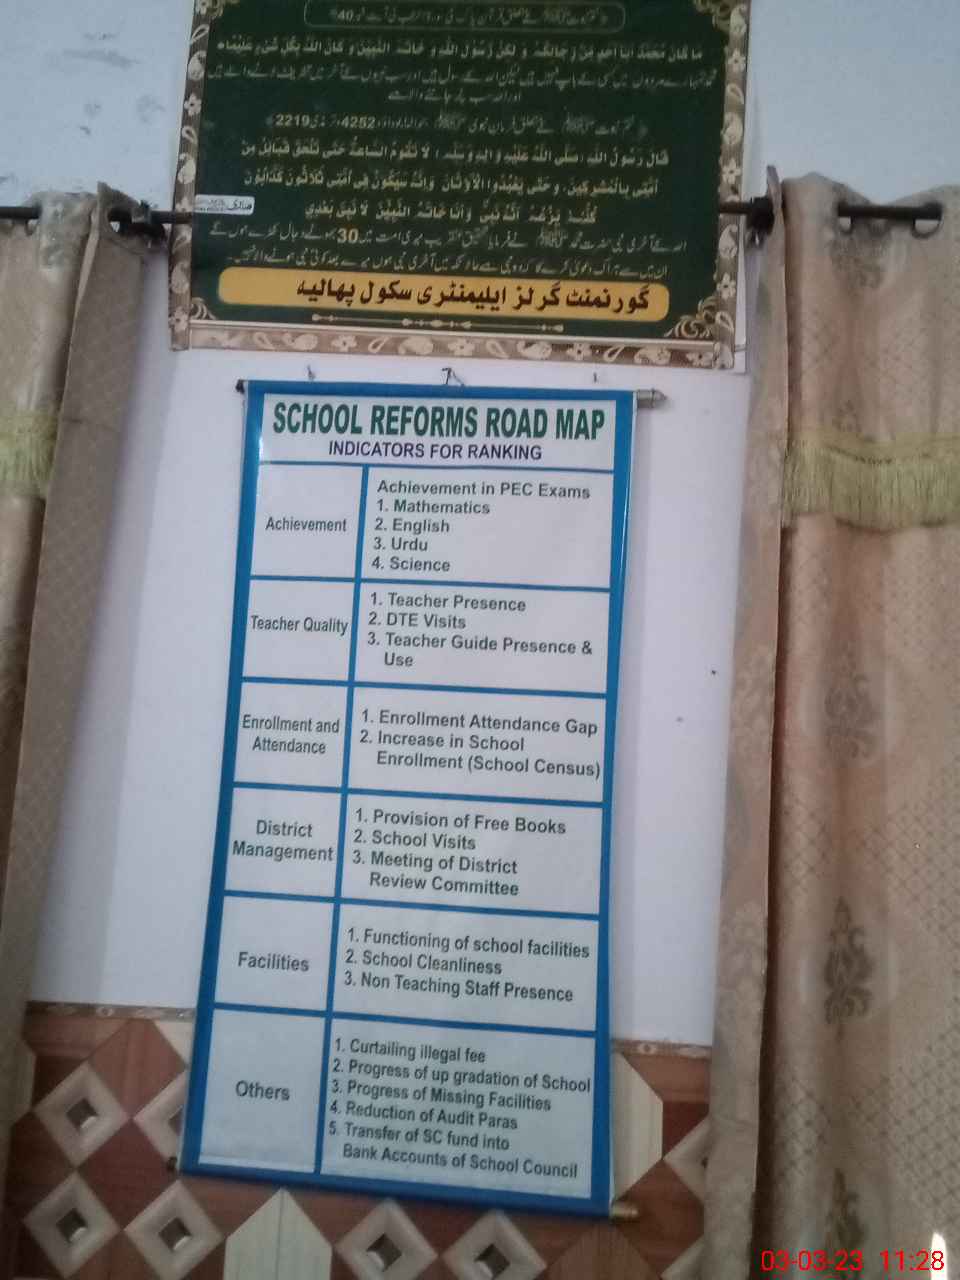 مَا كَانَ مُحَمَّدٌ اَبَا اَحَدٍ مِّنْ رِّجَالِكُمْ وَ لٰكِنْ رَّسُوْلَ اللّٰهِ وَ خَاتَمَ النَّبِيّٖنَ وَ كَانَ اللّٰهُ بِكُلِّ شَيْءٍ عَلِيْمًا
قَالَ رَسُوْلُ اللّٰهِ صَلَّى اللّٰهُ عَلَيْهِ وَاٰلِهٖ وَسَلَّمَ لَا تَقُوْمُ السَّاعَةُ حَتّٰى تَلْحَقَ قَبَائِلُ مِنْ
اُمَّتِيْ بِالْمُشْرِكِيْنَ وَ حَتّٰى يَعْبُدُوا الْاَوْثَانَ وَاِنَّهٗ سَيَكُوْنُ فِيْ اُمَّتِيْ ثَلَاثُوْنَ كَذَّابُوْنَ
كُلُّهُمْ يَزْعُمُ اَنَّهٗ نَبِيٌّ وَاَنَا خَاتَمُ النَّبِيّٖنَ لَا نَبِيَّ بَعْدِيْ
گورنمنٹ گرلز ایلیمنٹری سکول پھالیہ
SCHOOL REFORMS ROAD MAP
INDICATORS FOR RANKING
Achievement
Achievement in PEC Exams
1. Mathematics
2. English
3. Urdu
4. Science
Teacher Quality
1. Teacher Presence
2. DTE Visits
3. Teacher Guide Presence &
Use
Enrollment and
Attendance
1. Enrollment Attendance Gap
2. Increase in School
Enrollment (School Census)
District
Management
1. Provision of Free Books
2. School Visits
3. Meeting of District
Review Committee
Facilities
1. Functioning of school facilities
2. School Cleanliness
3. Non Teaching Staff Presence
Others
1. Curtailing illegal fee
2. Progress of up gradation of School
3. Progress of Missing Facilities
4. Reduction of Audit Paras
5. Transfer of SC fund into
Bank Accounts of School Council
03-03-23 11:28